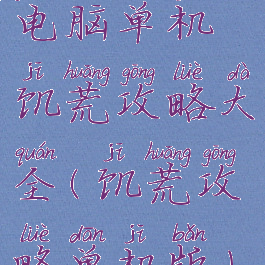 电脑单机
jī huāng gōng lüè dà
饥荒攻略大
quán jī huāng gōng
全(饥荒攻
lüè dān jī bǎn
略单机版)